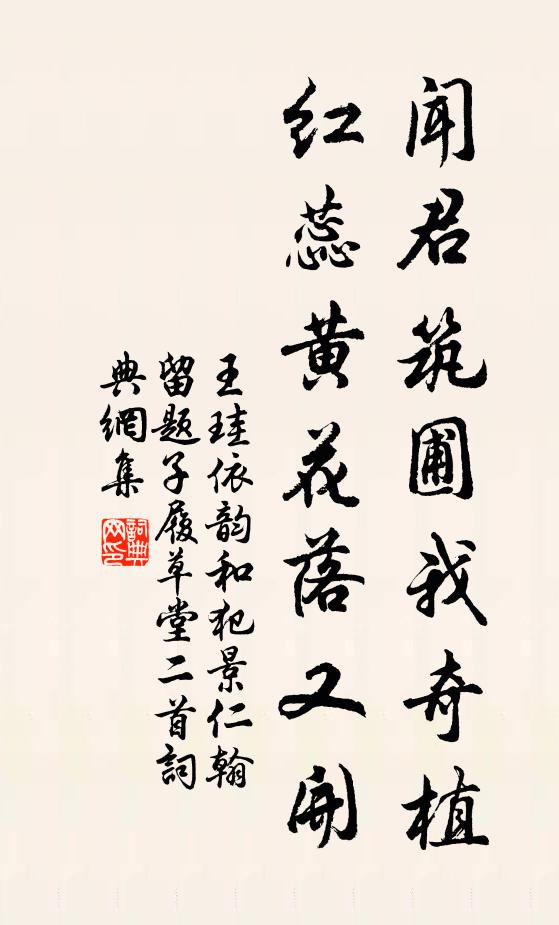 闻君筑圃我奇植
红蕊黄花落又開
王珪依韵和犯景仁翰
留题子履草堂二首詞
典網集
詞典網印